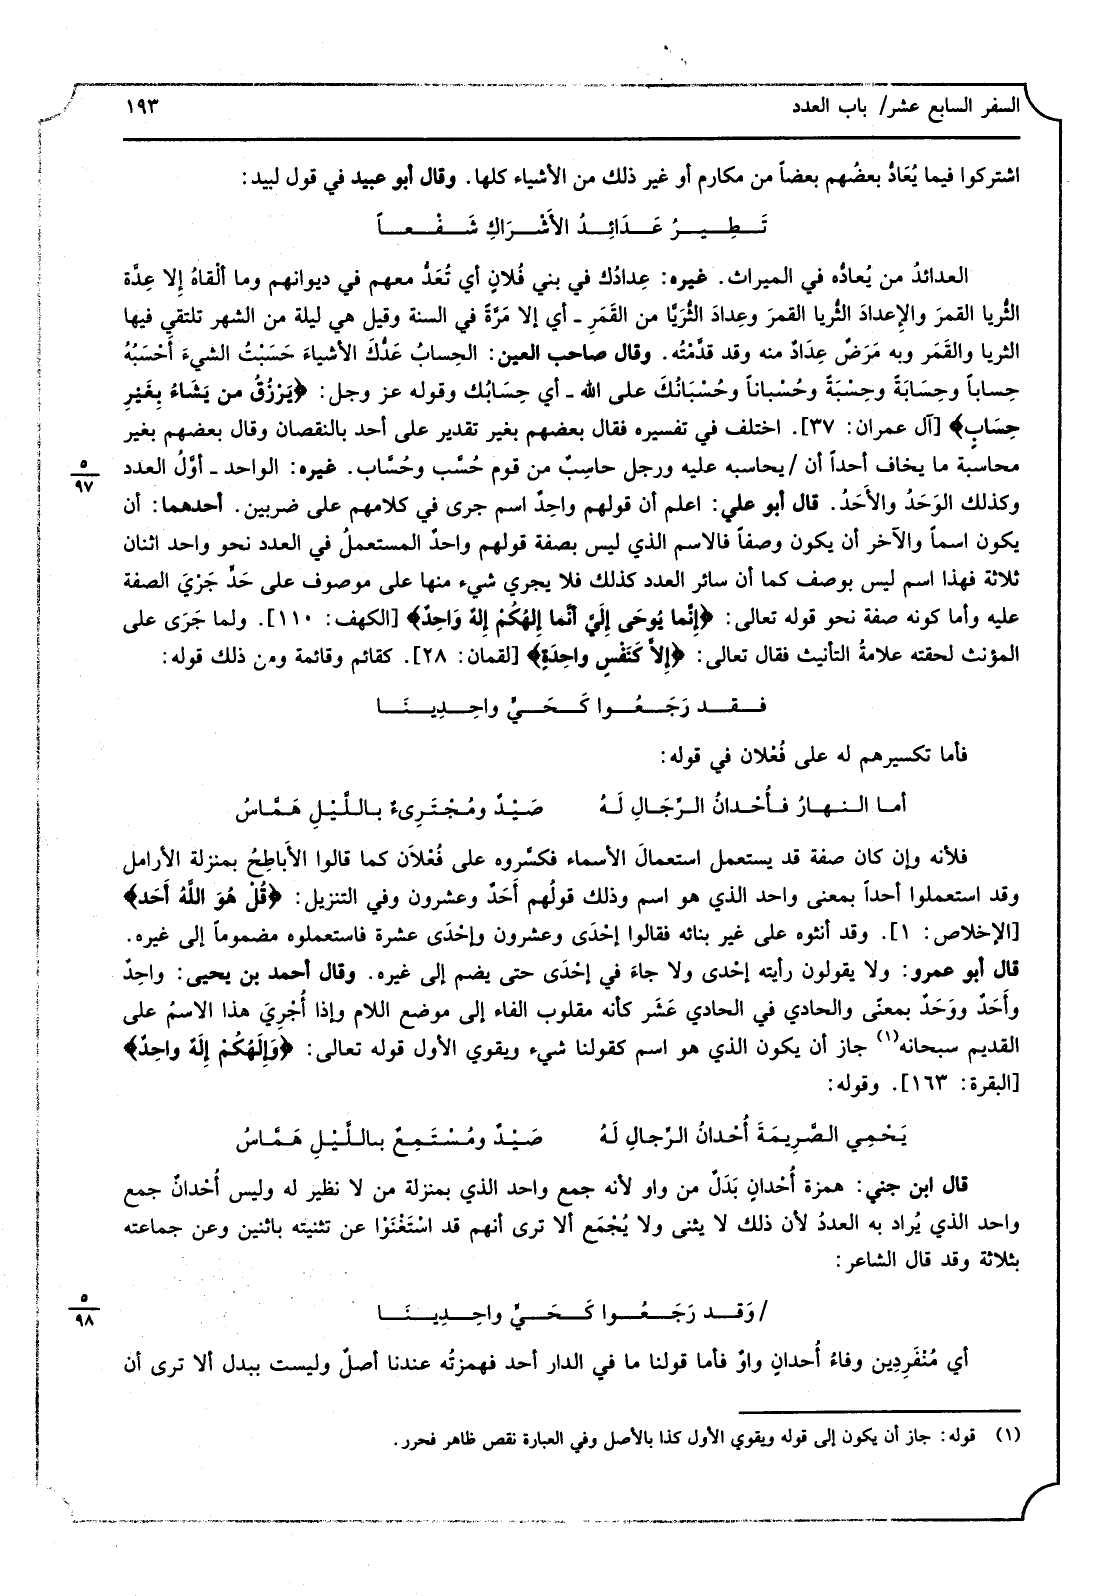 السفر السابع عشر/ باب العدد
١٩٣
اشتركوا فيما يُعَادُّ بعضُهم بعضاً من مكارم أو غير ذلك من الأشياء كلها. وقال أبو عبيد في قول لبيد:
تَـطِـيـرُ عَـدَائِـدُ الأَشْـرَاكِ شَـفْـعـاً
العدائدُ من يُعادُّه في الميراث. غيره: عِدادُك في بني فُلانٍ أي تُعَدُّ معهم في ديوانهم وما ألْقاهُ إلا عِدَّة
الثُّريا القمرَ والإعدادَ الثُّريا القمرَ وعِدادَ الثُّرَيَّا من القَمَرِ ـ أي إلا مَرَّةً في السنة وقيل هي ليلة من الشهر تلتقي فيها
الثريا والقَمَر وبه مَرَضٌ عِدَادٌ منه وقد قدَّمْتُه. وقال صاحب العين: الحِسابُ عَدُّكَ الأشياءَ حَسَبْتُ الشيءَ أَحْسُبُهُ
حِساباً وحِسَابَةً وحِسْبَةً وحُسْباناً وحُسْبَانُكَ على الله ـ أي حِسَابُك وقوله عز وجل: ﴿يَرْزُقُ من يَشَاءُ بِغَيْرِ
حِسَابٍ﴾ [آل عمران: ٣٧]. اختلف في تفسيره فقال بعضهم بغير تقدير على أحد بالنقصان وقال بعضهم بغير
محاسبة ما يخاف أحداً أن /يحاسبه عليه ورجل حاسِبٌ من قوم حُسَّب وحُسَّاب. غيره: الواحد ـ أوَّلُ العدد
٥
٩٧
وكذلك الوَحَدُ والأَحَدُ. قال أبو علي: اعلم أن قولهم واحِدٌ اسم جرى في كلامهم على ضربين. أحدهما: أن
يكون اسماً والآخر أن يكون وصفاً فالاسم الذي ليس بصفة قولهم واحدٌ المستعملُ في العدد نحو واحد اثنان
ثلاثة فهذا اسم ليس بوصف كما أن سائر العدد كذلك فلا يجري شيء منها على موصوف على حَدِّ جَرْيَ الصفة
عليه وأما كونه صفة نحو قوله تعالى: ﴿إِنَّما يُوحَى إِلَيَّ أَنَّما إِلهُكُمْ إِلهٌ وَاحِدٌ﴾ [الكهف: ١١٠]. ولما جَرَى على
المؤنث لحقته علامةُ التأنيث فقال تعالى: ﴿إِلاَّ كَنَفْسٍ واحِدَةٍ﴾ [لقمان: ٢٨]. كقائم وقائمة ومن ذلك قوله:
فـقـد رَجَـعُـوا كَـحَـيٍّ واحِـدِيـنَـا
فأما تكسيرهم له على فُعْلان في قوله:
أمـا الـنـهـارُ فـأُحْـدانُ الـرِّجَـالِ لَـهُ صَـيْـدٌ ومُـجْـتَـرِىءٌ بـالـلَّـيْـلِ هَـمَّـاسُ
فلأنه وإن كان صفة قد يستعمل استعمالَ الأسماء فكسَّروه على فُعْلاَن كما قالوا الأَباطِحُ بمنزلة الأرامل
وقد استعملوا أحداً بمعنى واحد الذي هو اسم وذلك قولُهم أَحَدٌ وعشرون وفي التنزيل: ﴿قُلْ هُوَ اللَّهُ أَحَد﴾
[الإخلاص: ١]. وقد أنثوه على غير بنائه فقالوا إحْدَى وعشرون وإحْدَى عشرة فاستعملوه مضموماً إلى غيره.
قال أبو عمرو: ولا يقولون رأيته إحْدى ولا جاءَ في إحْدَى حتى يضم إلى غيره. وقال أحمد بن يحيى: واحِدٌ
وأَحَدٌ ووَحَدٌ بمعنًى والحادي في الحادي عَشَر كأنه مقلوب الفاء إلى موضع اللام وإذا أُجْرِيَ هذا الاسمُ على
القديم سبحانه(١) جاز أن يكون الذي هو اسم كقولنا شيء ويقوي الأول قوله تعالى: ﴿وَإِلَهُكُمْ إِلَهٌ واحِدٌ﴾
[البقرة: ١٦٣]. وقوله:
يَـحْمِي الصَّرِيمَةَ أُحْدانُ الرِّجالِ لَهُ صَـيْـدٌ ومُـسْـتَـمِـعٌ بـالـلَّـيْـلِ هَـمَّـاسُ
قال ابن جني: همزة أُحْدانٍ بَدَلٌ من واو لأنه جمع واحد الذي بمنزلة من لا نظير له وليس أُحْدانٌ جمع
واحد الذي يُراد به العددُ لأن ذلك لا يثنى ولا يُجْمَع ألا ترى أنهم قد اسْتَغْنَوْا عن تثنيته باثنين وعن جماعته
بثلاثة وقد قال الشاعر:
/وَقـد رَجَـعُـوا كَـحَـيٍّ واحِـدِيـنَـا
٥
٩٨
أي مُنْفَرِدِين وفاءُ أُحدانٍ واوٌ فأما قولنا ما في الدار أحد فهمزتُه عندنا أصلٌ وليست ببدل ألا ترى أن
(١) قوله: جاز أن يكون إلى قوله ويقوي الأول كذا بالأصل وفي العبارة نقص ظاهر فحرر.